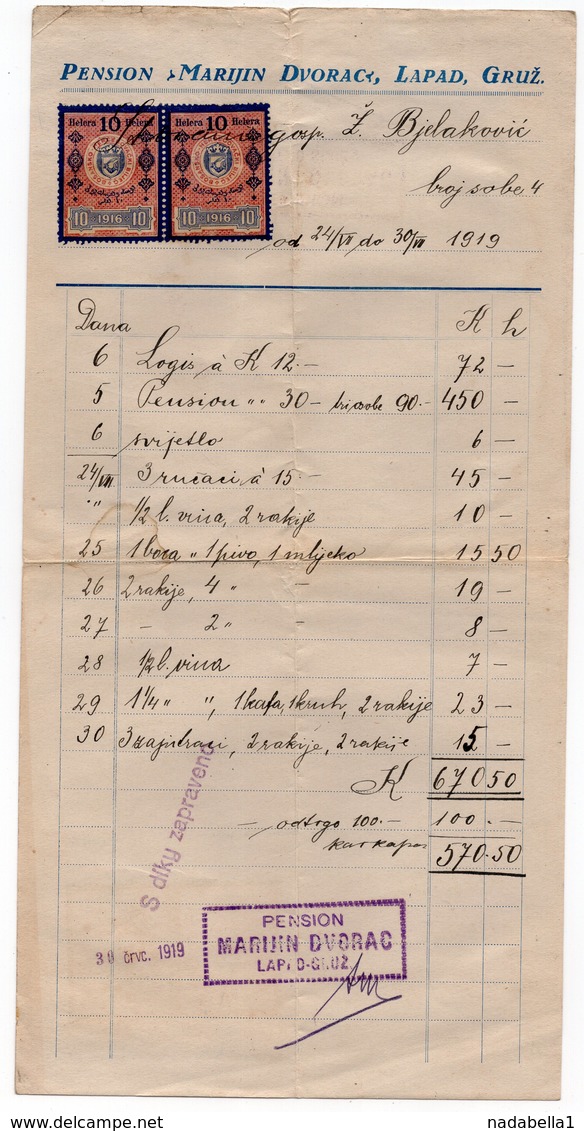 PENSION ›MARIJIN DVORAC‹, LAPAD, GRUŽ.
Helera 10 Helera Helera 10 Helera
10 1916 10 10 1916 10
gosp. Ž. Bjelaković
broj sobe 4
od 24/VII do 30/VII 1919
Dana K h
6 Logis à K 12.- 72 -
5 Pension " " 30 - 90.- 450 -
6 svijetlo 6 -
24/VII 3 ručaci à 15.- 45 -
" 1/2 l. vina, 2 rakije 10 -
25 1 boca " 1 pivo, 1 mlijeko 15 50
26 2 rakije, 4 " - 19 -
27 - 2 " - 8 -
28 1/2 l. vina 7 -
29 1 1/4 " ", 1 kafa, 1 kruh, 2 rakije 23 -
30 3 zajutraci, 2 rakije, 2 rakije 15 -
K 670 50
- 100.- 100.-
570.50
S díky zapraveno
30 črvc. 1919
PENSION
MARIJIN DVORAC
LAPAD-GRUŽ
nadabella1